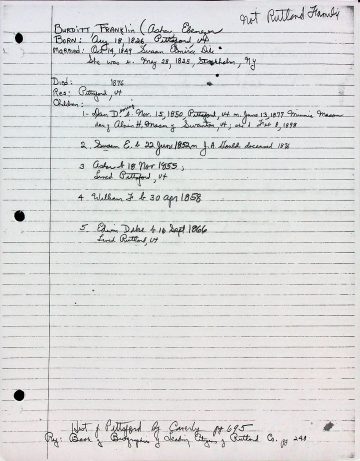 Not Rutland Family
BURDITT FRANKLIN (Asher Ebenezer
BORN: Aug 18, 1826 Pittsford, Vt
MARRIED: Oct 14, 1849 Susan Dike
She was b. May 28, 1825, Stockholm, NY
Died: 1896
Res: Pittsford, Vt
Children:
1- Dan D. b. Nov. 15, 1850, Pittsford, Vt m. June 13, 1877 Minnie Mason
dau of Alvin H. Mason of Swanton, Vt, Feb 8, 1898
2. Susan E. b 22 June 1852 m J. A Gould deceased 1876
3 Asher b 18 Nov 1855,
Lived Pittsford, Vt
4 William F b 30 Apr 1858
5. Edwin Dike b 16 Sept 1866
Lived Rutland, Vt
Hist of Pittsford by Caverly pp 695
Reg: Book of Biographies of Leading Citizens of Rutland Co. pg 240